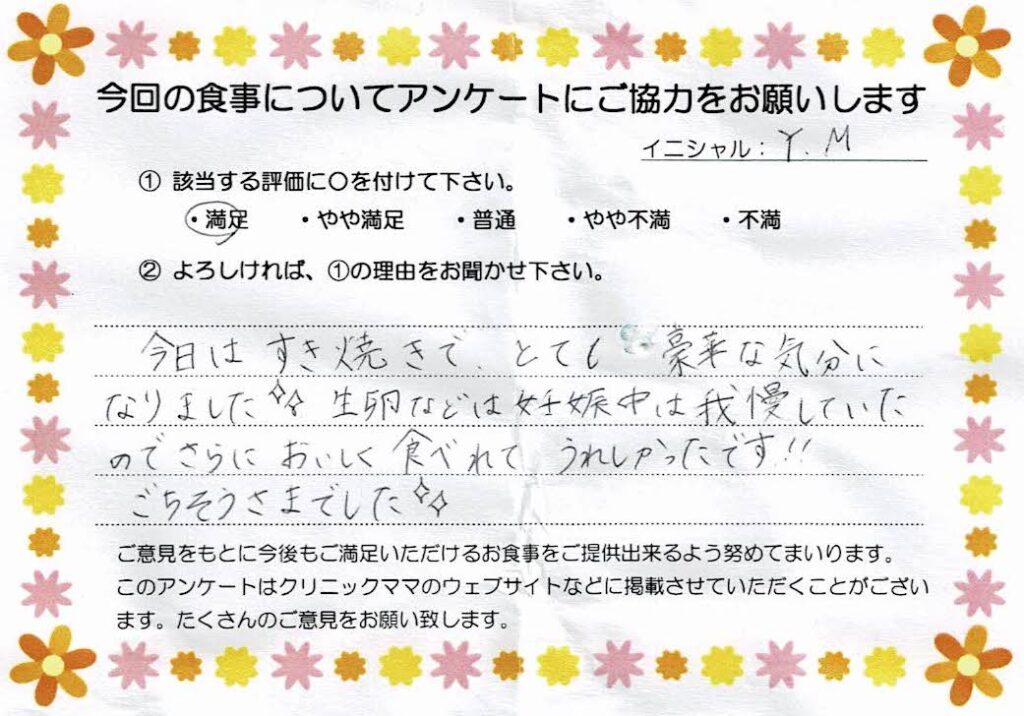 今回の食事についてアンケートにご協力をお願いします
イニシャル：Y.M
① 該当する評価に〇を付けて下さい。
・満足 ・やや満足 ・普通 ・やや不満 ・不満
② よろしければ、①の理由をお聞かせ下さい。
今日は すき焼きで、とても 豪華な気分に
なりました✨ 生卵などは妊娠中は我慢していた
のでさらに おいしく食べれて うれしかったです!!
ごちそうさまでした✨
ご意見をもとに今後もご満足いただけるお食事をご提供出来るよう努めてまいります。
このアンケートはクリニックママのウェブサイトなどに掲載させていただくことがござい
ます。たくさんのご意見をお願い致します。